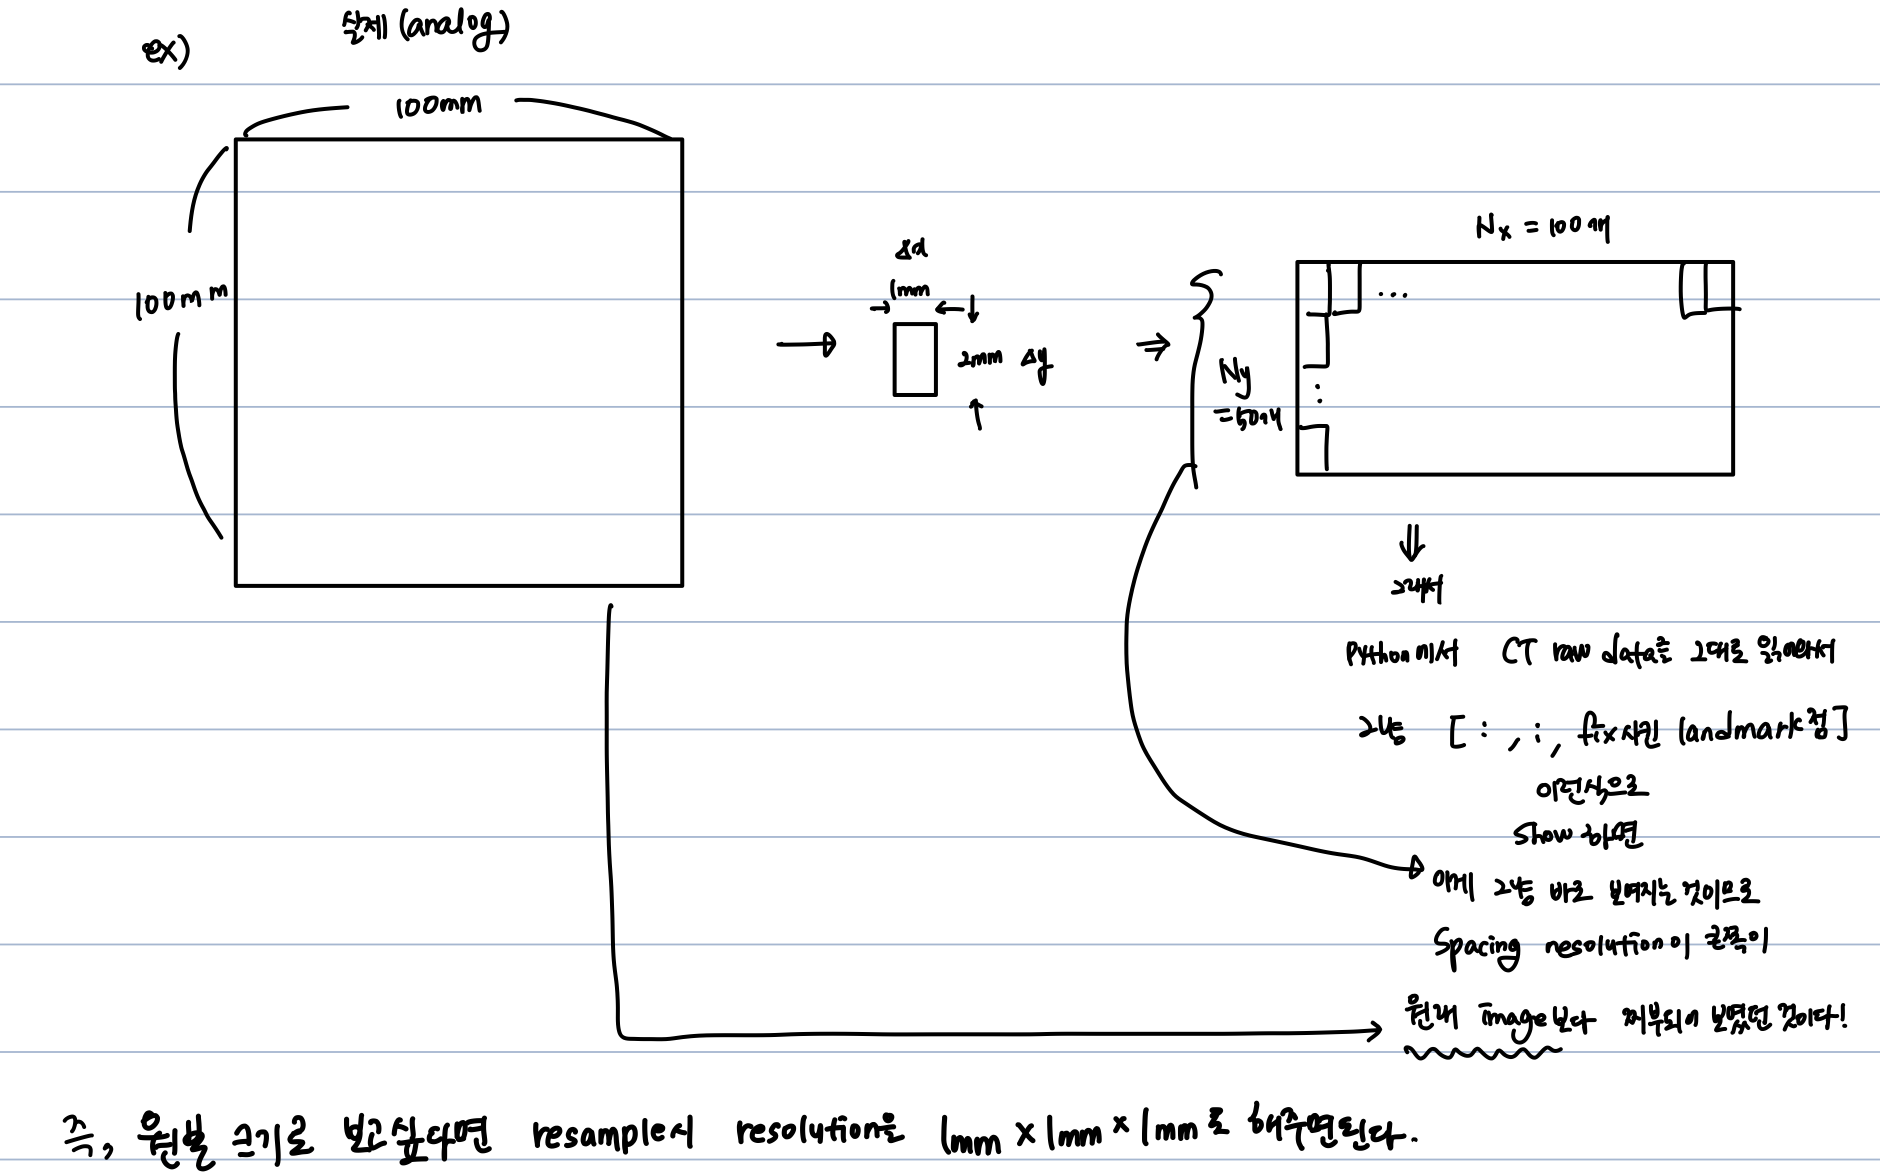 ex)
실제 (analog)
100mm
100mm
Δx
1mm
2mm Δy
Nx = 100개
Ny
=50개
...
:
그래서
Python에서 CT raw data를 그대로 읽어와서
그냥 [ : , : , fix시킨 landmark점]
이런식으로
show 하면
이게 그냥 바로 보여지는 것이므로
Spacing resolution이 큰쪽이
원래 image보다 찌부되어 보였던 것이다!
즉, 원본 크기로 보고싶다면 resample시 resolution을 1mm x 1mm x 1mm로 해주면된다.